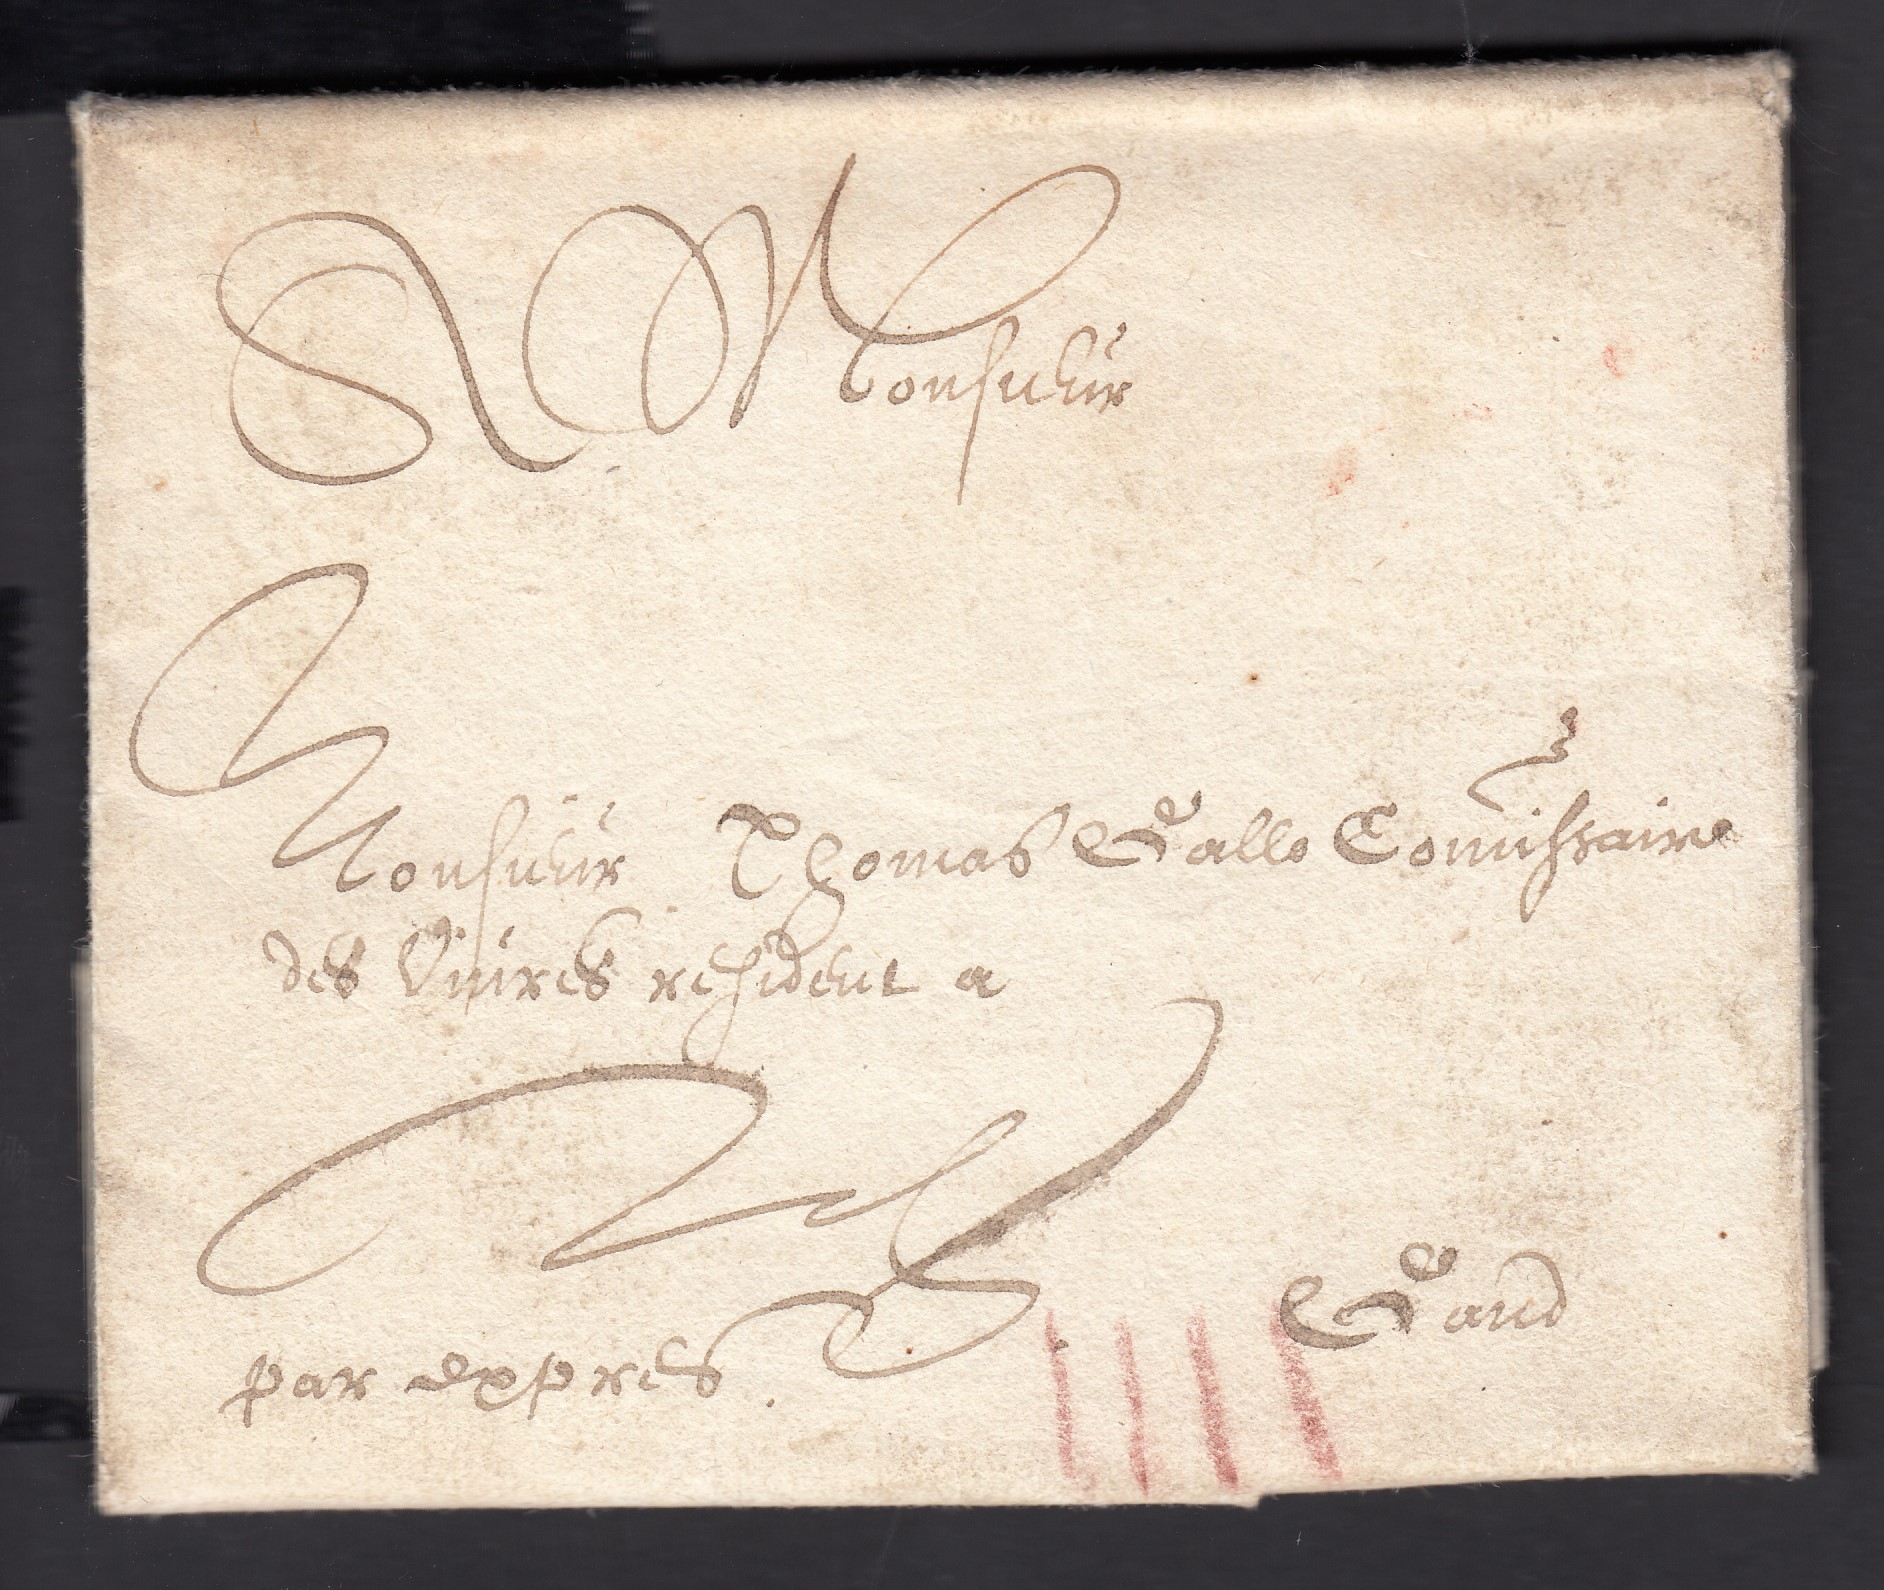 A Monsieur
Monsieur Thomas Gallo Comissaire
des Viures resident a
Gand
par expres.
IIII